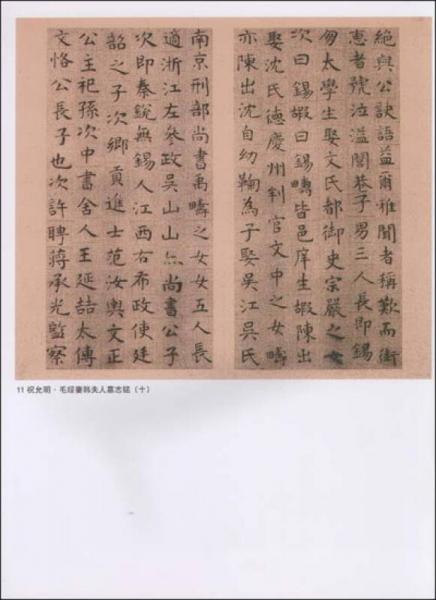 絶與公訣語益爾雅聞者稱歎而銜
惠者號泣溢閭巷子男三人長即錫
太學生娶文氏都御史宗嚴之女
次曰錫嘏曰錫疇皆邑庠生嘏陳出
娶沈氏德慶州判官文中之女疇
亦陳出沈自幼鞠為子娶吳江吳氏
南京刑部尚書禹疇之女女五人長
適浙江左參政吳山山亦尚書公子
次即秦銳無錫人江西右布政使廷
韶之子次鄉貢進士范汝輿文正
公主祀孫次中書舍人王延喆太傅
文恪公長子也次許聘蔣承光監察
11 祝允明·毛珵妻韩夫人墓志铭（十）